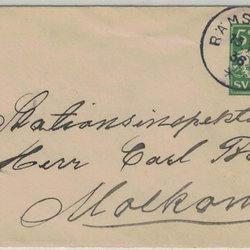 RÄMS
5
SV
Stationsinspekt
Herr Carl B
Molkom